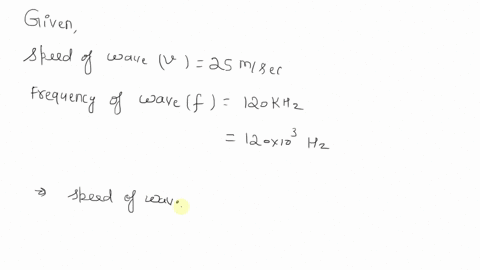 Given,
Speed of wave (v) = 25 m/sec
Frequency of wave (f) = 120 KHz
= 120×10³ Hz
⇒ speed of wav